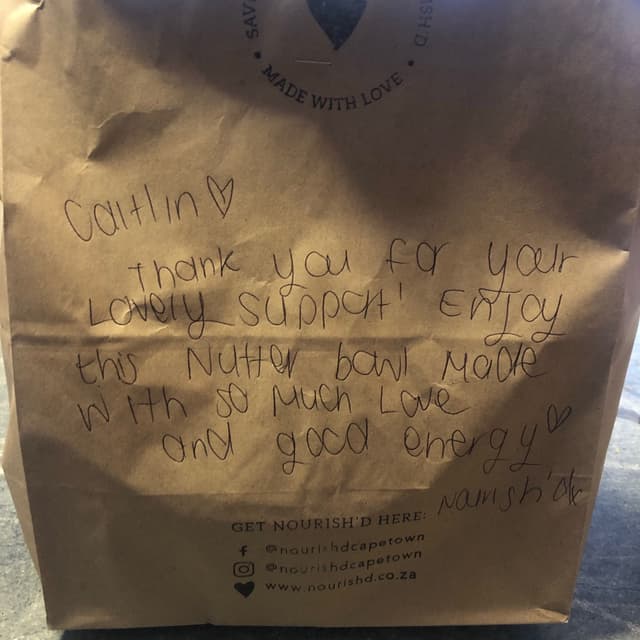 MADE WITH LOVE
Caitlin ♡
Thank you for your
Lovely support! Enjoy
this Nutter bowl Made
With so Much Love
and good energy ♡
Nourish'd
GET NOURISH'D HERE:
@nourishdcapetown
@nourishdcapetown
www.nourishd.co.za